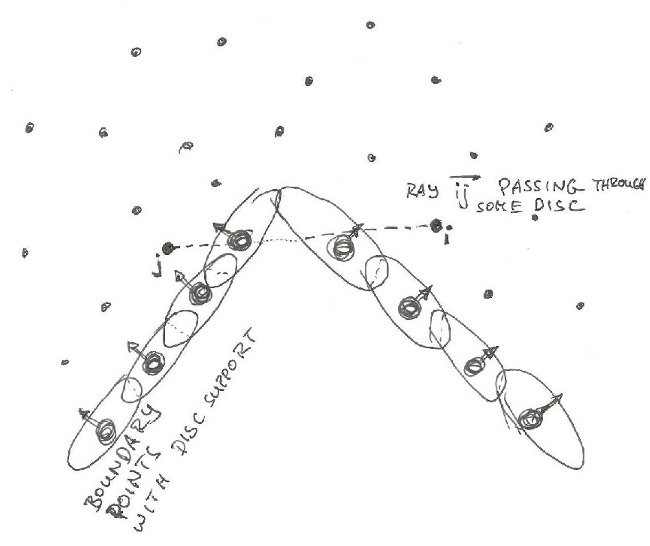 RAY ij PASSING THROUGH
SOME DISC
j
i
BOUNDARY
POINTS
WITH DISC SUPPORT